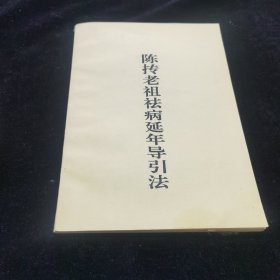 陈抟老祖祛病延年导引法